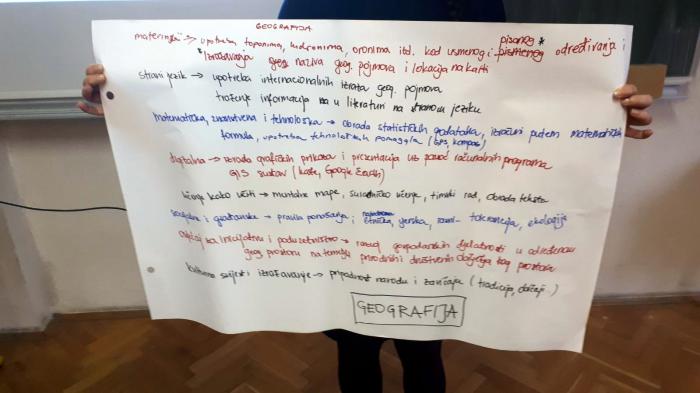 GEOGRAFIJA
materinski → upotreba toponima, hidronima, oronima itd. kod usmenog i pisanog* pismenog određivanja i
*izražavanja geog. naziva geog. pojmova i lokacija na karti
strani jezik → upotreba internacionalnih izraza geog. pojmova
traženje informacija na u literaturi na stranom jeziku
matematička, znanstvena i tehnološka → obrada statističkih podataka, izračuni putem matematičkih
formula, upotreba tehnoloških pomagala (GPS, kompas)
digitalna → izrada grafičkih prikaza i prezentacija uz pomoć računalnih programa
GIS sustav (karte, Google Earth)
učenje kako učiti → mentalne mape, suradničko učenje, timski rad, obrada teksta
socijalna i građanska → pravila ponašanja i etnička, vjerska, tolerancija, ekologija
osjećaj za inicijativu i poduzetništvo → razvoj gospodarskih djelatnosti u određenom
geog. prostoru na temelju prirodnih i društvenih obilježja tog prostora
kulturna svijest i izražavanje → pripadnost narodu i zavičaju (tradicija, običaji..)
GEOGRAFIJA